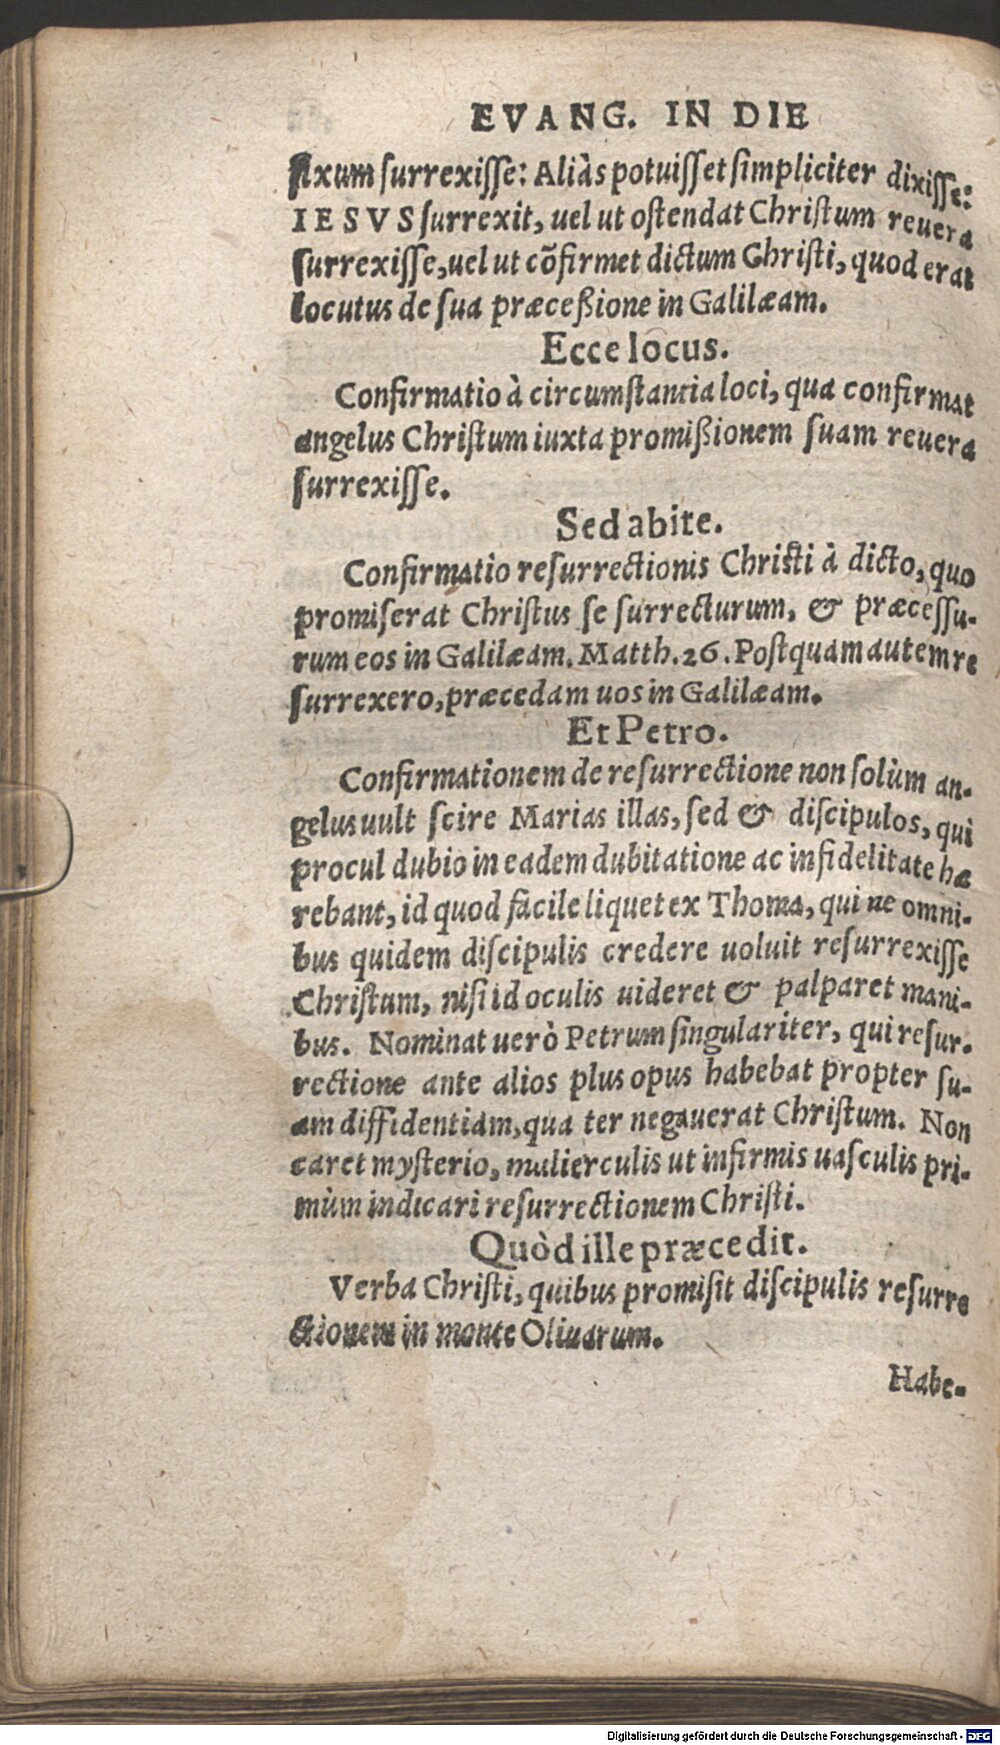 EVANG. IN DIE
fixum surrexisse: Aliàs potuisset simpliciter dixisse:
IESVS surrexit, uel ut ostendat Christum reuera
surrexisse, uel ut cõfirmet dictum Christi, quod erat
locutus de sua præceßione in Galilæam.
Ecce locus.
Confirmatio à circumstantia loci, qua confirmat
angelus Christum iuxta promißionem suam reuera
surrexisse.
Sed abite.
Confirmatio resurrectionis Christi à dicto, quo
promiserat Christus se surrecturum, & præcessu-
rum eos in Galilæam. Matth. 26. Postquam autem re
surrexero, præcedam uos in Galilæam.
Et Petro.
Confirmationem de resurrectione non solùm an-
gelus uult scire Marias illas, sed & discipulos, qui
procul dubio in eadem dubitatione ac infidelitate hæ
rebant, id quod facile liquet ex Thoma, qui ne omni-
bus quidem discipulis credere uoluit resurrexisse
Christum, nisi id oculis uideret & palparet mani-
bus. Nominat uerò Petrum singulariter, qui resur-
rectione ante alios plus opus habebat propter su-
am diffidentiam, qua ter negauerat Christum. Non
caret mysterio, mulierculis ut infirmis uasculis pri-
mùm indicari resurrectionem Christi.
Quòd ille præcedit.
Verba Christi, quibus promisit discipulis resurre
ctionem in monte Oliuarum.
Habe-
Digitalisierung gefördert durch die Deutsche Forschungsgemeinschaft - DFG